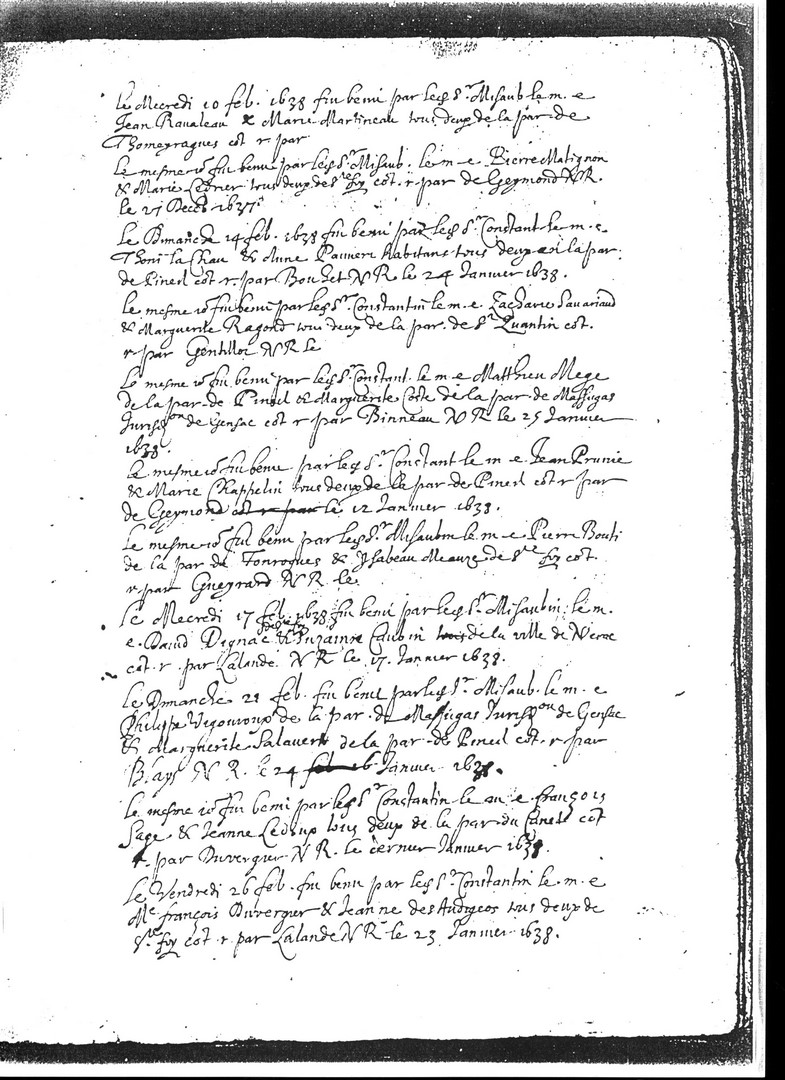 Le Mecredi 10 feb. 1638 fu beni par les S.r Misaub. le m. e
Jean Raualeau & Marie Martineau tous deux de la par. de
Thomeyragues cot r par
Le mesme io.r fu benu par les S.r Misaub. le m. e Pierre Matignon
& Marie tous deux de S.te foy cot. r par de Geymond N R.
le 27 Deceb 1637
Le Dimanche 14 feb. 1638 fu beni par les S.r Constant. le m. e
Thoni la Chau & Anne habitans tous deux en la par.
de Pineil cot r. par Bouhet N R le 24 Januier 1638.
Le mesme io.r fu benu par les S.r Constantin le m. e Zacharie Sauariaud
& Marguerite Ragond tous deux de la par. de S.t Quantin cot.
r par Gentillot N R le
Le mesme io.r fu benu par les S.r Constant. le m e Matthieu Mege
de la par. de Pineil & Marguerite Coste de la par. de Massugas
Jurisd.on de Gensac cot r par Binneau N R le 25 Januier
1638.
Le mesme io.r fu benu par les S.r Constant le m e Jean Prunie
& Marie Chappelin tous deux de la par de Pineil cot r par
de Geymond cot r par le 12 Januier 1638.
Le mesme io.r fu benu par les S.r Misaubin le m e Pierre Bouti
de la par de Fonroques & Isabeau de S.te foy cot.
r par Gueyrard N R le
Le Mecredi 17 feb. 1638 fu beni par les S.r Misaubin le m.
e Dauid Dignac & Suzainne Caubin tous de la ville de Nerac
cot. r. par Lalande N R le 17. Januier 1638.
Le Dimanche 21 feb. fu benu par les S.r Misaub. le m e
Philippe Vigouroux de la par. de Massugas Jurisd.on de Gensac
& Marguerite Salauert de la par. de Pineil cot. r par
Blays N R. le 24 Januier 1638.
Le mesme io.r fu beni par les S.r Constantin le m e françois
Sage & Jeanne tous deux de la par. du Canet cot
r. par Duvergier N R. le dernier Januier 1638.
Le Vendredi 26 feb. fu benu par les S.r Constantin le m. e
M.e françois Duvergier & Jeanne des Audigeos tous deux de
S.te foy cot r par Lalande N R le 23 Januier 1638.